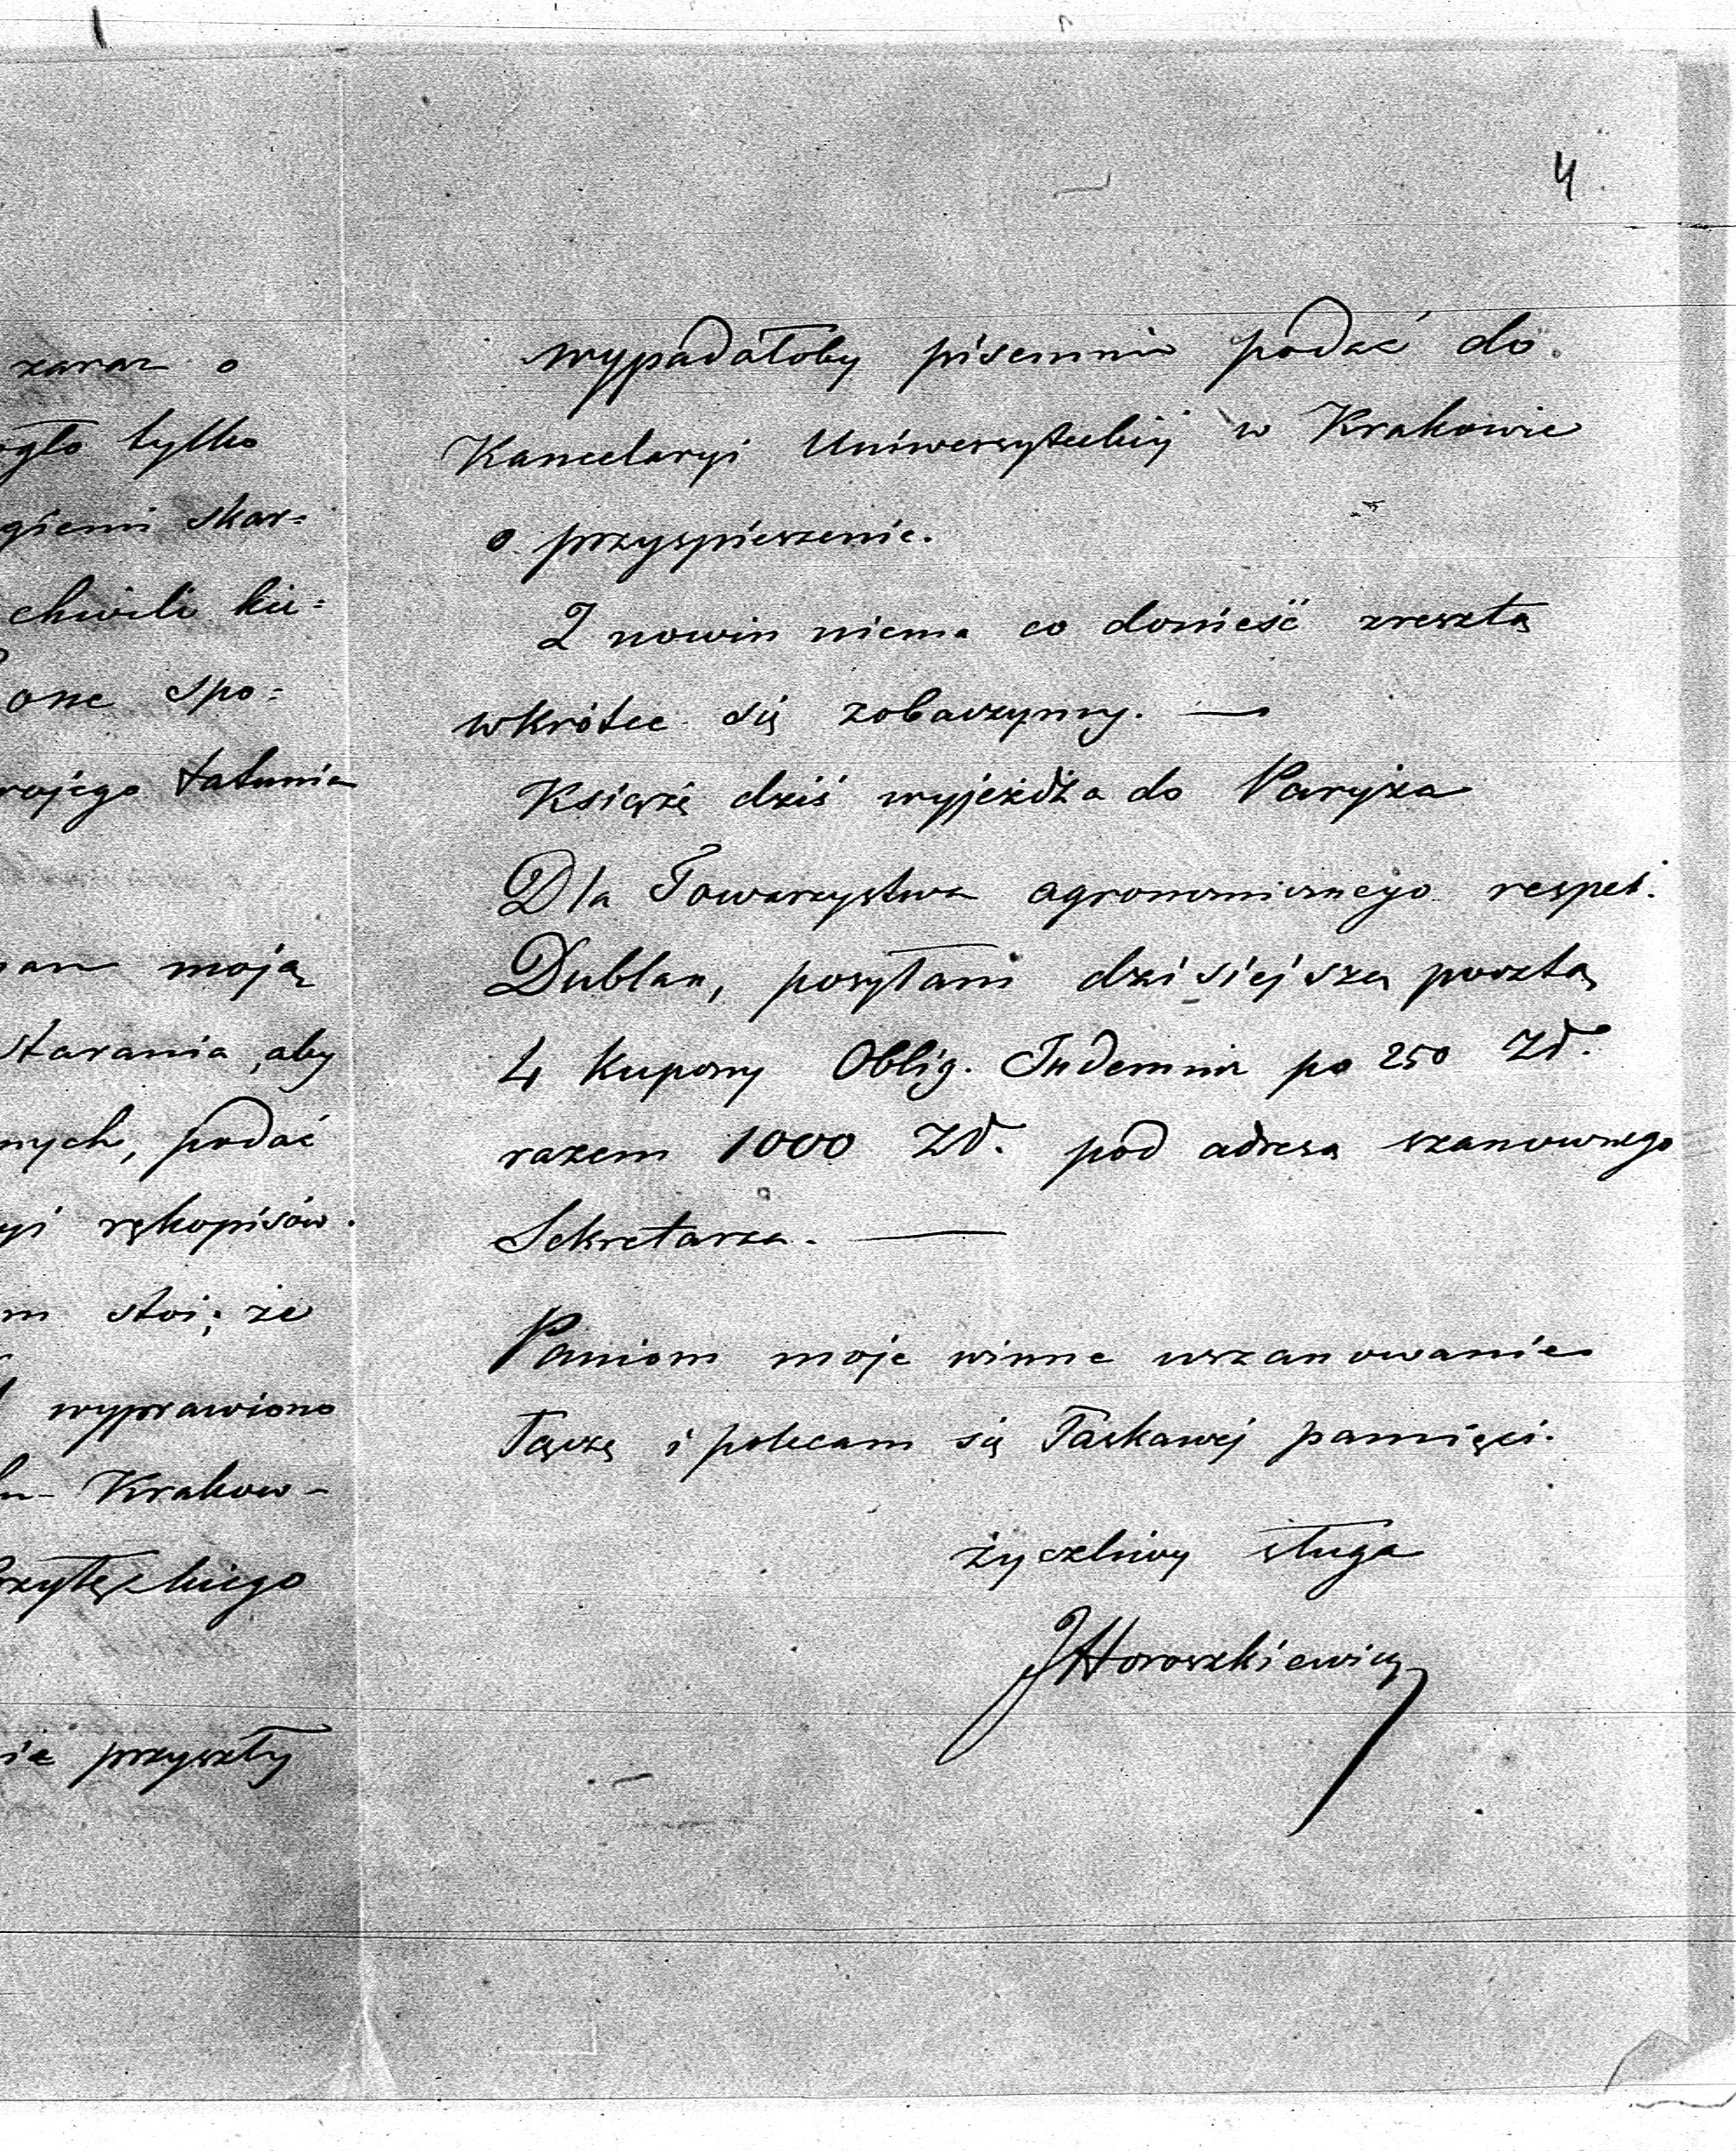 zaraz o
ogło tylko
giemi skar=
chwili kie=
one spo=
mojego tatunia
moją
starania, aby
nych, podać
yi rękopisów.
m stoi; że
wyprawiono
Krakow-
nie przyszły
4
wypadałoby pisemnie podać do
Kancelaryi Uniwersyteckiej w Krakowie
o przyspieszenie.
Z nowin niema co donieść zresztą
wkrótce się zobaczymy. —
Książę dziś wyjeżdża do Paryża
Dla Towarzystwa agronomicznego respet.
Dublan, posyłam dzisiejszą pocztą
4 kupony Oblig. Indemniz po 250 Zł.
razem 1000 Zł. pod adresą szanownego
Sekretarza. —
Paniom moje winne uszanowanie
łączę i polecam się łaskawej pamięci.
życzliwy sługa
JHoroszkiewicz